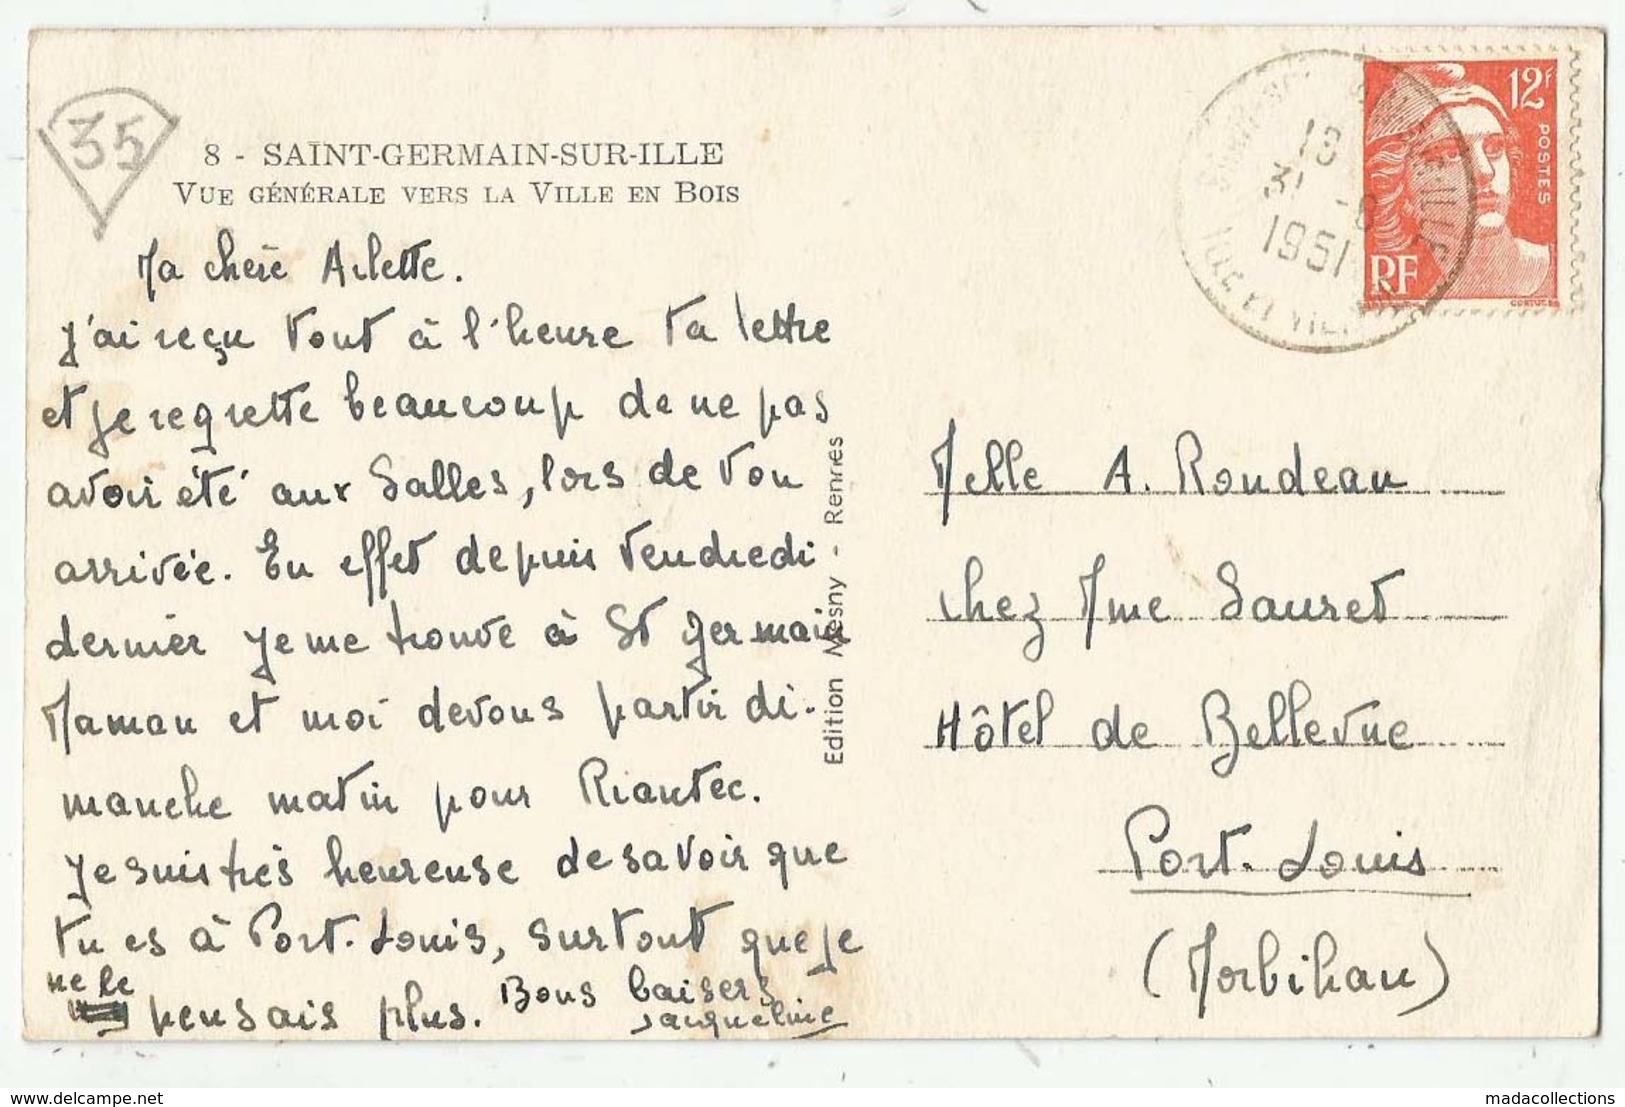 35
8 - SAINT-GERMAIN-SUR-ILLE
VUE GÉNÉRALE VERS LA VILLE EN BOIS
Ma chère Arlette.
J'ai reçu tout à l'heure ta lettre
et je regrette beaucoup de ne pas
avoir été aux Salles, lors de ton
arrivée. En effet depuis vendredi
dernier je me trouve à St Germain
Maman et moi devons partir di-
manche matin pour Riantec.
Je suis très heureuse de savoir que
tu es à Port-Louis, surtout que je
ne le pensais plus. Bons baisers
Jacqueline
Edition Mesny - Rennes
12F
POSTES
RF
1951
ILLE ET VILAINE
Melle A. Rondeau
chez Mme Sauret
Hôtel de Bellevue
Port-Louis
(Morbihan)
www.delcampe.net
madacollections